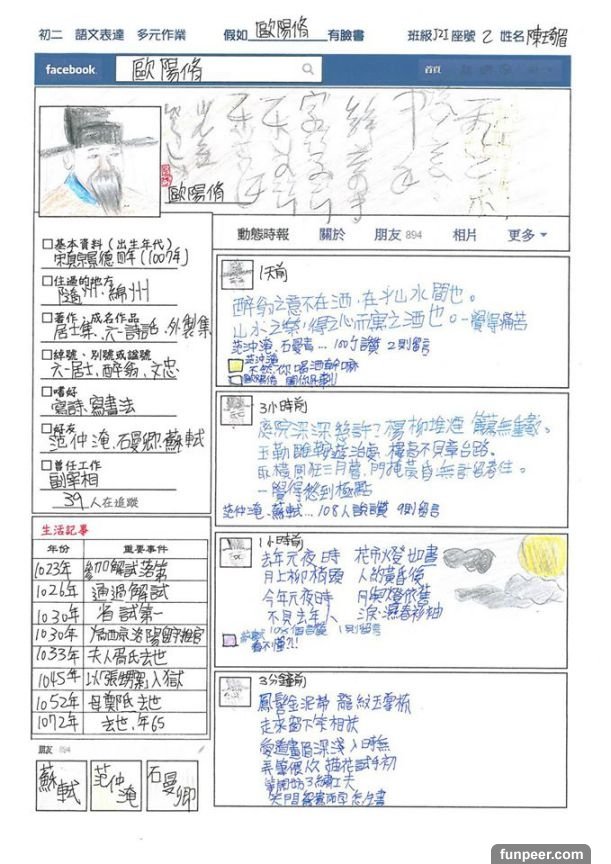 初二 語文表達 多元作業 假如 歐陽脩 有臉書 班級J2I 座號 2 姓名 陳
facebook 歐陽脩 首頁
歐陽脩
動態時報 關於 朋友 894 相片 更多
基本資料(出生年代)
宋真宗景德四年(1007年)
住過的地方
隨州、綿州
著作、成名作品
居士集、六一詩話、外製集
綽號、別號或諡號
六一居士、醉翁、文忠
嗜好
寫詩、寫書法
好友
范仲淹、石曼卿、蘇軾
曾任工作
副宰相
39 人在追蹤
生活記事
年份 重要事件
1023年 參加解試落第
1026年 通過解試
1030年 省試第一
1030年 西京洛陽留守推官
1033年 夫人胥氏去世
1045年 以「張甥案」入獄
1052年 母鄭氏去世
1072年 去世,年65
朋友 894
蘇軾 范仲淹 石曼卿
1天前
醉翁之意不在酒,在乎山水間也。
山水之樂,得之心而寓之酒也。-覺得痛苦
范仲淹、石曼卿…100個讚 2則留言
范仲淹
不然你喝酒幹嘛
歐陽脩
3小時前
庭院深深深幾許?楊柳堆煙 簾幕無重數。
玉勒雕鞍遊冶處,樓高不見章台路。
雨橫風狂三月暮,門掩黃昏,無計留春住。
-覺得愁到極點
范仲淹、蘇軾…108人說讚 9則留言
1小時前
去年元夜時 花市燈如晝
月上柳梢頭 人約黃昏後
今年元夜時 月與燈依舊
不見去年人 淚濕春衫袖
個讚 1則留言
看不懂?!!
3分鐘前
鳳髻金泥帶 龍紋玉掌梳
走來窗下笑相扶
愛道畫眉深淺入時無
弄筆偎人久 描花試手初
笑問鴛鴦兩字怎生書
funpeer.com